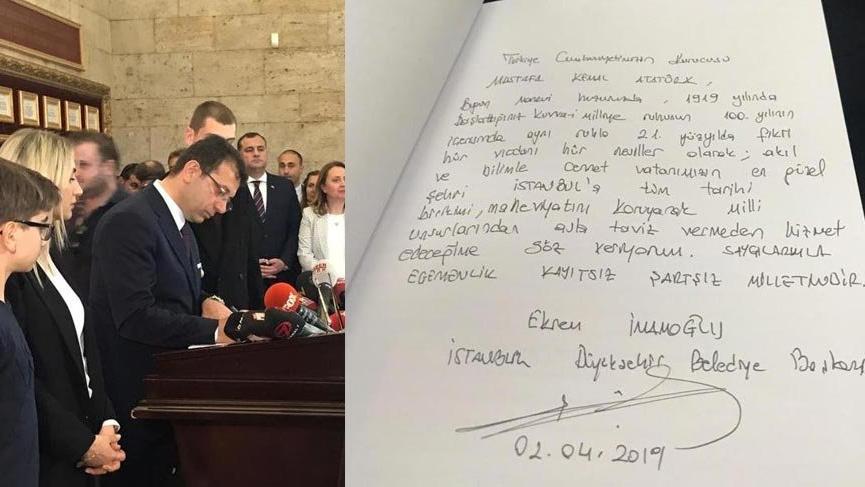 Türkiye Cumhuriyetimizin Kurucusu
MUSTAFA KEMAL ATATÜRK,
Bugün Manevi huzurunuzda, 1919 yılında
Başlattığınız Kuvvai Milliye ruhunun 100. yılının
içerisinde aynı ruhla 21. yüzyılda fikri
hür vicdanı hür nesiller olarak; akıl
ve bilimle Cennet vatanımızın en güzel
şehri İSTANBUL'a tüm tarihi
birikimi, maneviyatını koruyarak Milli
unsurlarından asla taviz vermeden hizmet
edeceğime söz veriyorum. SAYGILARIMLA
EGEMENLİK KAYITSIZ ŞARTSIZ MİLLETİNDİR.
Ekrem İMAMOĞLU
İSTANBUL Büyükşehir Belediye Başkanı
02.04.2019
FOX